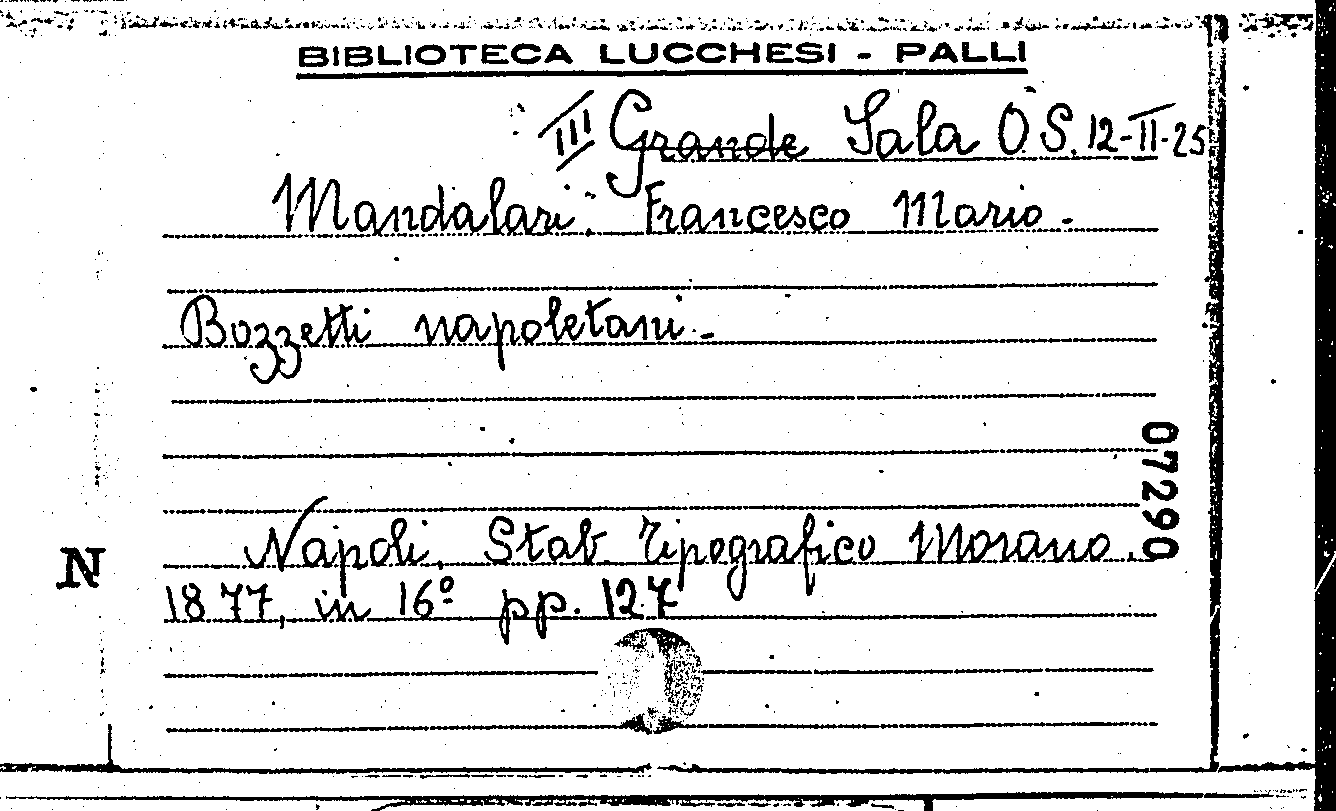 BIBLIOTECA LUCCHESI - PALLI
III Grande Sala O S. 12-II-25
Mandalari: Francesco Mario -
Bozzetti napoletani -
07290
Napoli. Stab. Tipografico Morano.
N
1877, in 16º pp. 127